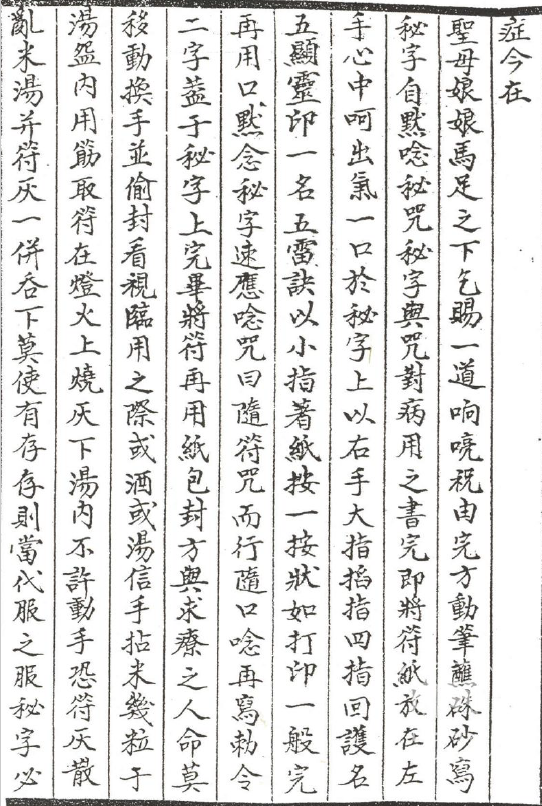 症今在
聖母娘娘馬足之下乞賜一道响喨祝由完方動筆蘸硃砂寫
秘字自默唸秘咒秘字與咒對病用之書完即將符紙放在左
手心中呵出氣一口於秘字上以右手大指掐指四指回護名
五顯靈印一名五雷訣以小指著紙按一按狀如打印一般完
再用口默念秘字速應唸咒曰隨符咒而行隨口唸再寫勅令
二字葢于秘字上完畢將符再用紙包封方與求療之人命莫
移動換手並偷封看視臨用之際或酒或湯信手拈米幾粒于
湯盌內用筯取符在燈火上燒灰下湯內不許動手恐符灰散
亂米湯并符灰一併吞下莫使有存存則當代服之服秘字必